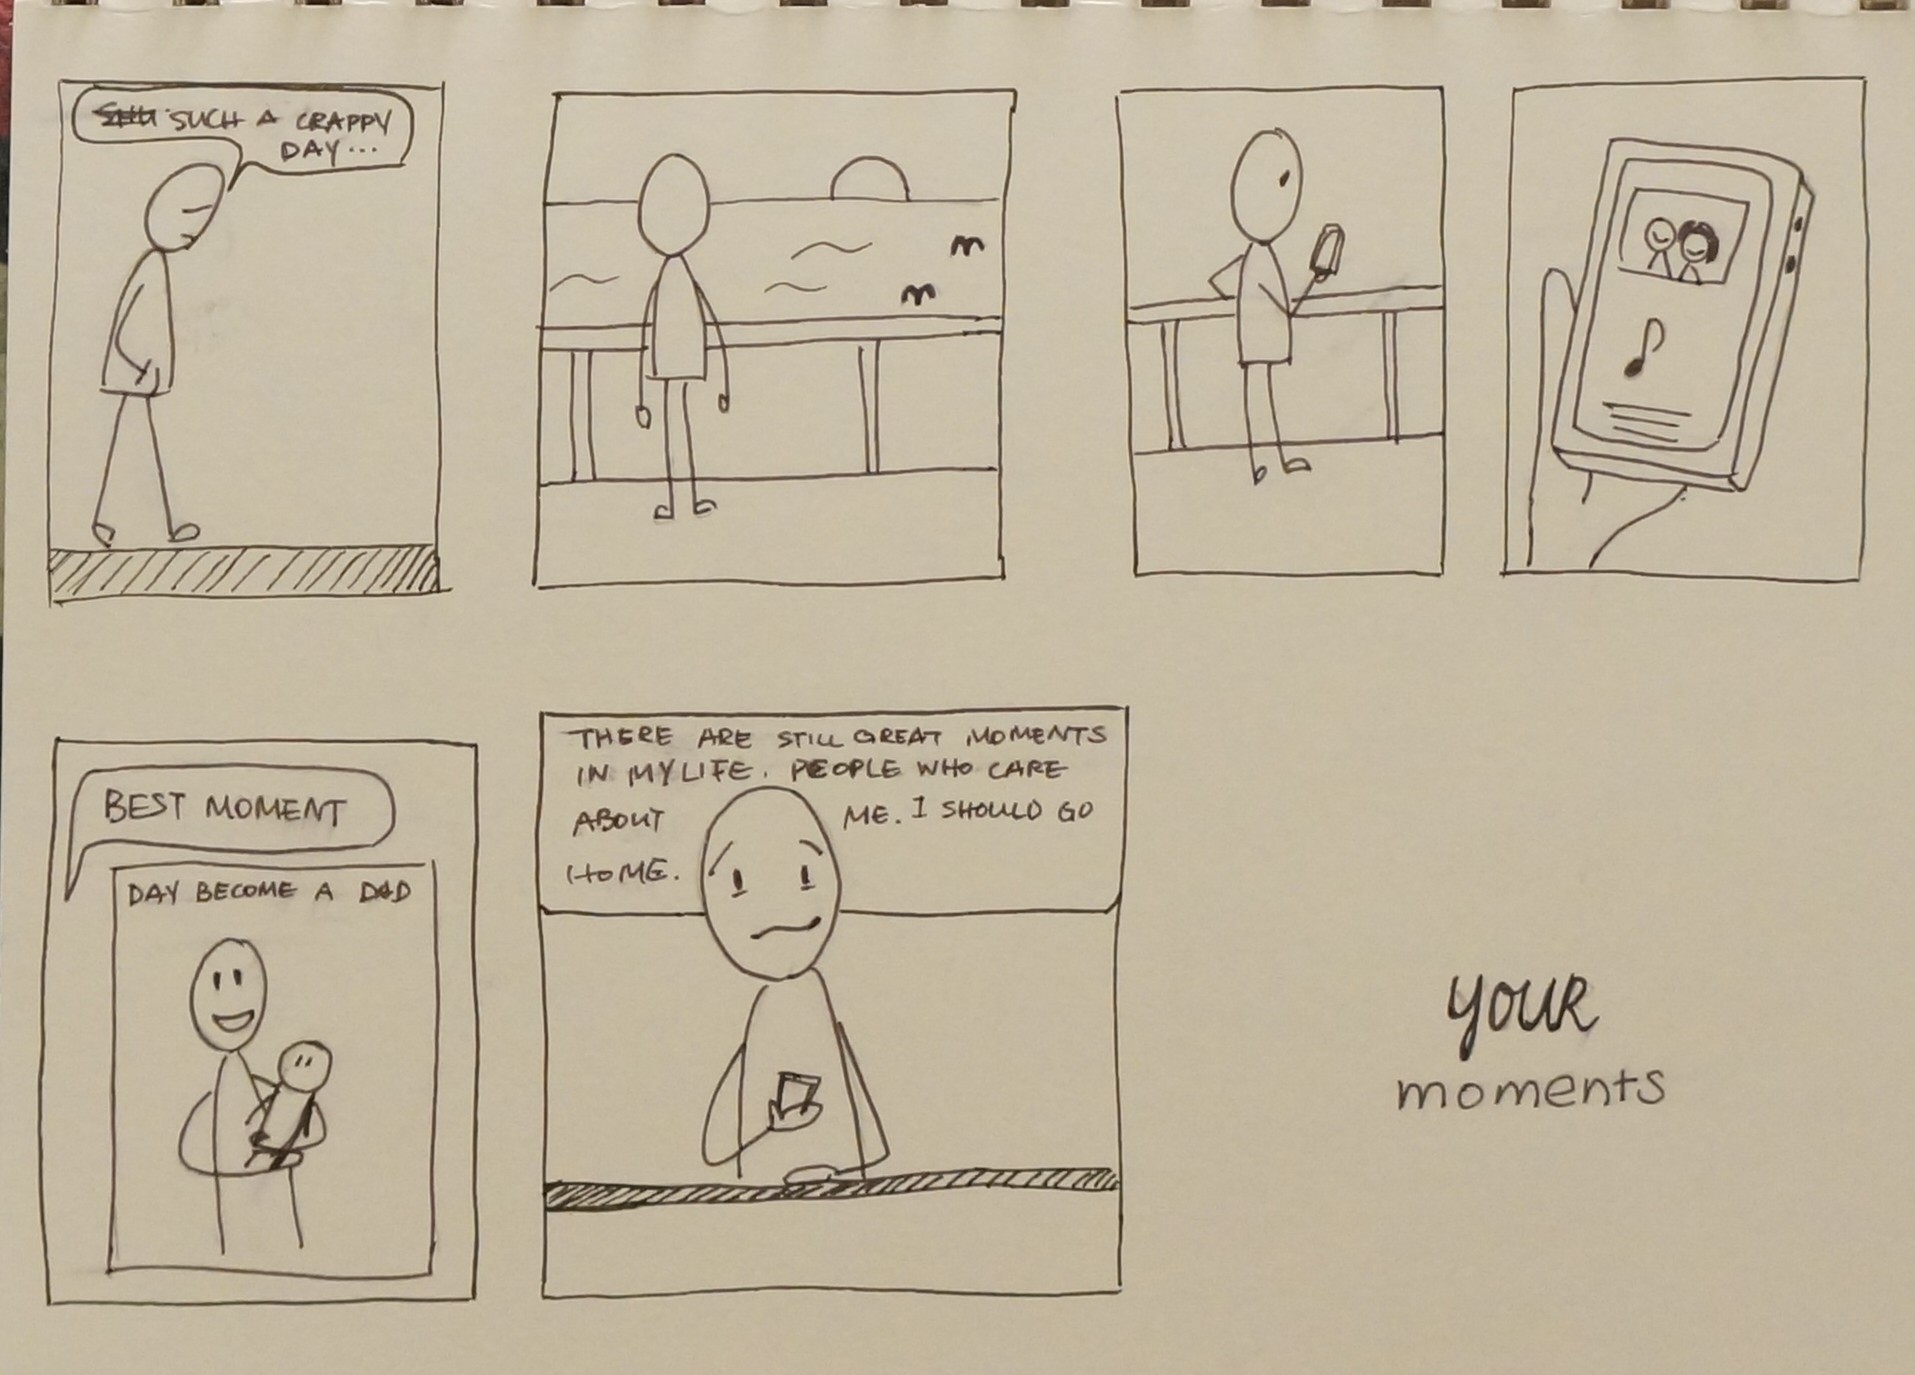 SUCH A CRAPPY
DAY...
BEST MOMENT
DAY BECOME A DAD
THERE ARE STILL GREAT MOMENTS
IN MY LIFE. PEOPLE WHO CARE
ABOUT ME. I SHOULD GO
HOME.
YOUR
moments